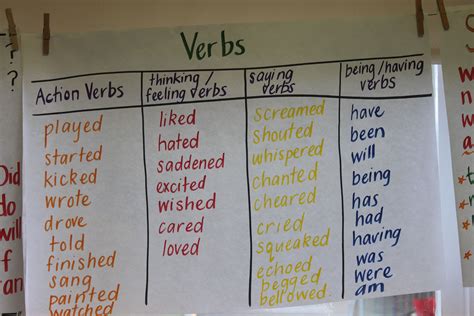 Verbs
Action Verbs
played
started
kicked
wrote
drove
told
finished
sang
painted
watched
thinking /
feeling verbs
liked
hated
saddened
excited
wished
cared
loved
saying
verbs
screamed
shouted
whispered
chanted
cheared
cried
squeaked
echoed
begged
bellowed.
being/having
verbs
have
been
will
being
has
had
having
was
were
am
?
?
Did
do
will